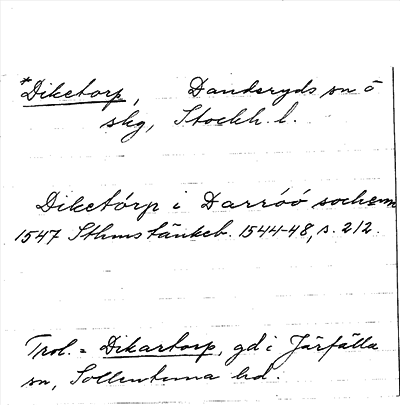 *Diketorp, Danderyds sn o
skg, Stockh. l.
Diketórp i Darróó sochenn
1547 Sthmstänkeb. 1544-48, s. 212.
Trol. = Dikartorp, gd i Järfälla
sn, Sollentuna hd.